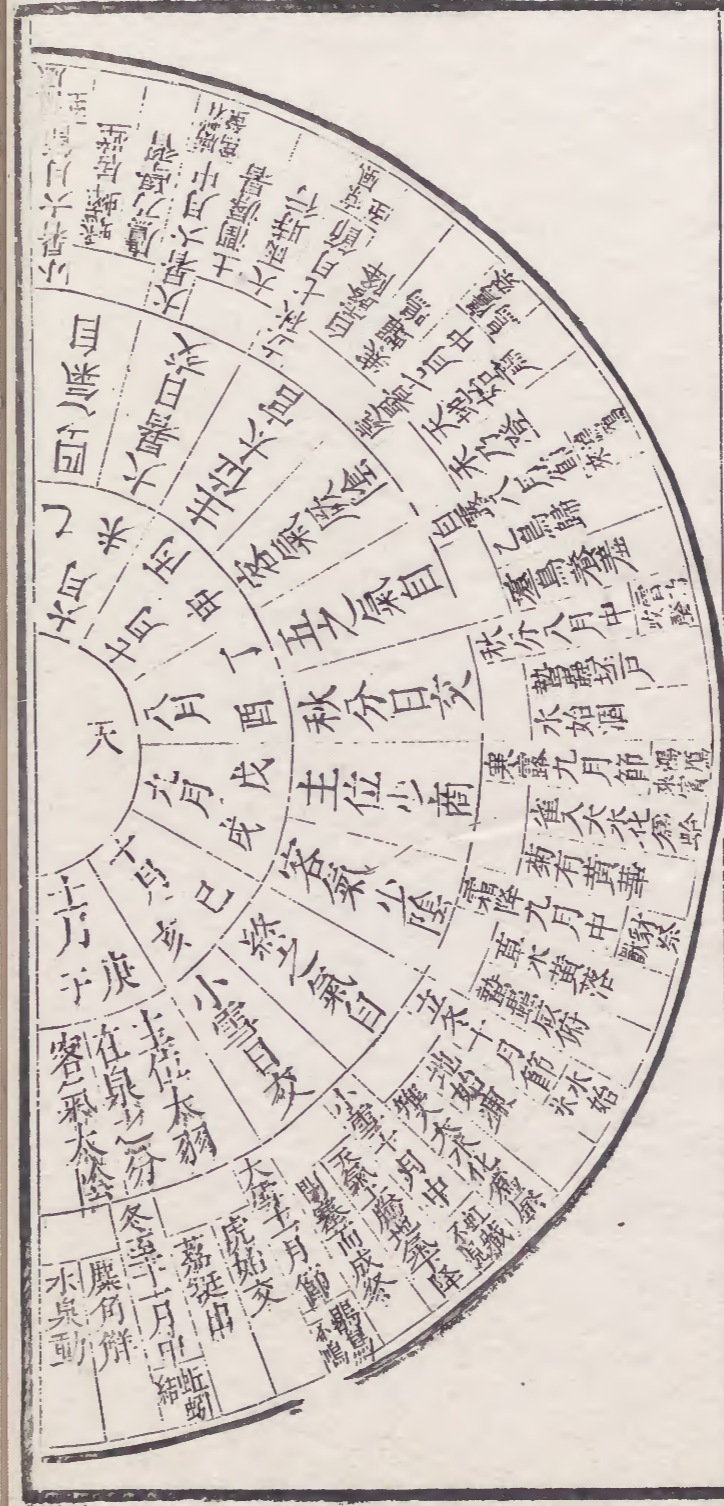 六月
未
七月
申
丙
八月
酉
丁
九月
戌
戊
十月
亥
己
十一月
子
庚
四之氣自
大暑日交
主位太宮
五之氣自
秋分日交
主位少商
客氣少陰
終之氣自
小雪日交
主位太羽
在泉之分
客氣太陰
小暑六月
大暑六月中
土潤溽暑
大雨時行
立秋七月節
白露降
寒蟬鳴
處暑七月中
天地始肅
禾乃登
白露八月節
鴻鴈來
乙鳥歸
羣鳥養羞
秋分八月中
雷乃收聲
蟄蟲坯戶
水始涸
寒露九月節
鴻鴈來賓
雀入大水化為蛤
菊有黃華
霜降九月中
豺祭獸
草木黃落
蟄蟲咸俯
立冬十月節
水始冰
地始凍
雉入大水化為蜃
小雪十月中
虹藏不見
天氣上騰地氣下降
閉塞而成冬
大雪十一月節
鶡鳥不鳴
虎始交
荔挺出
冬至十一月中
蚯蚓結
麋角觧
水泉動